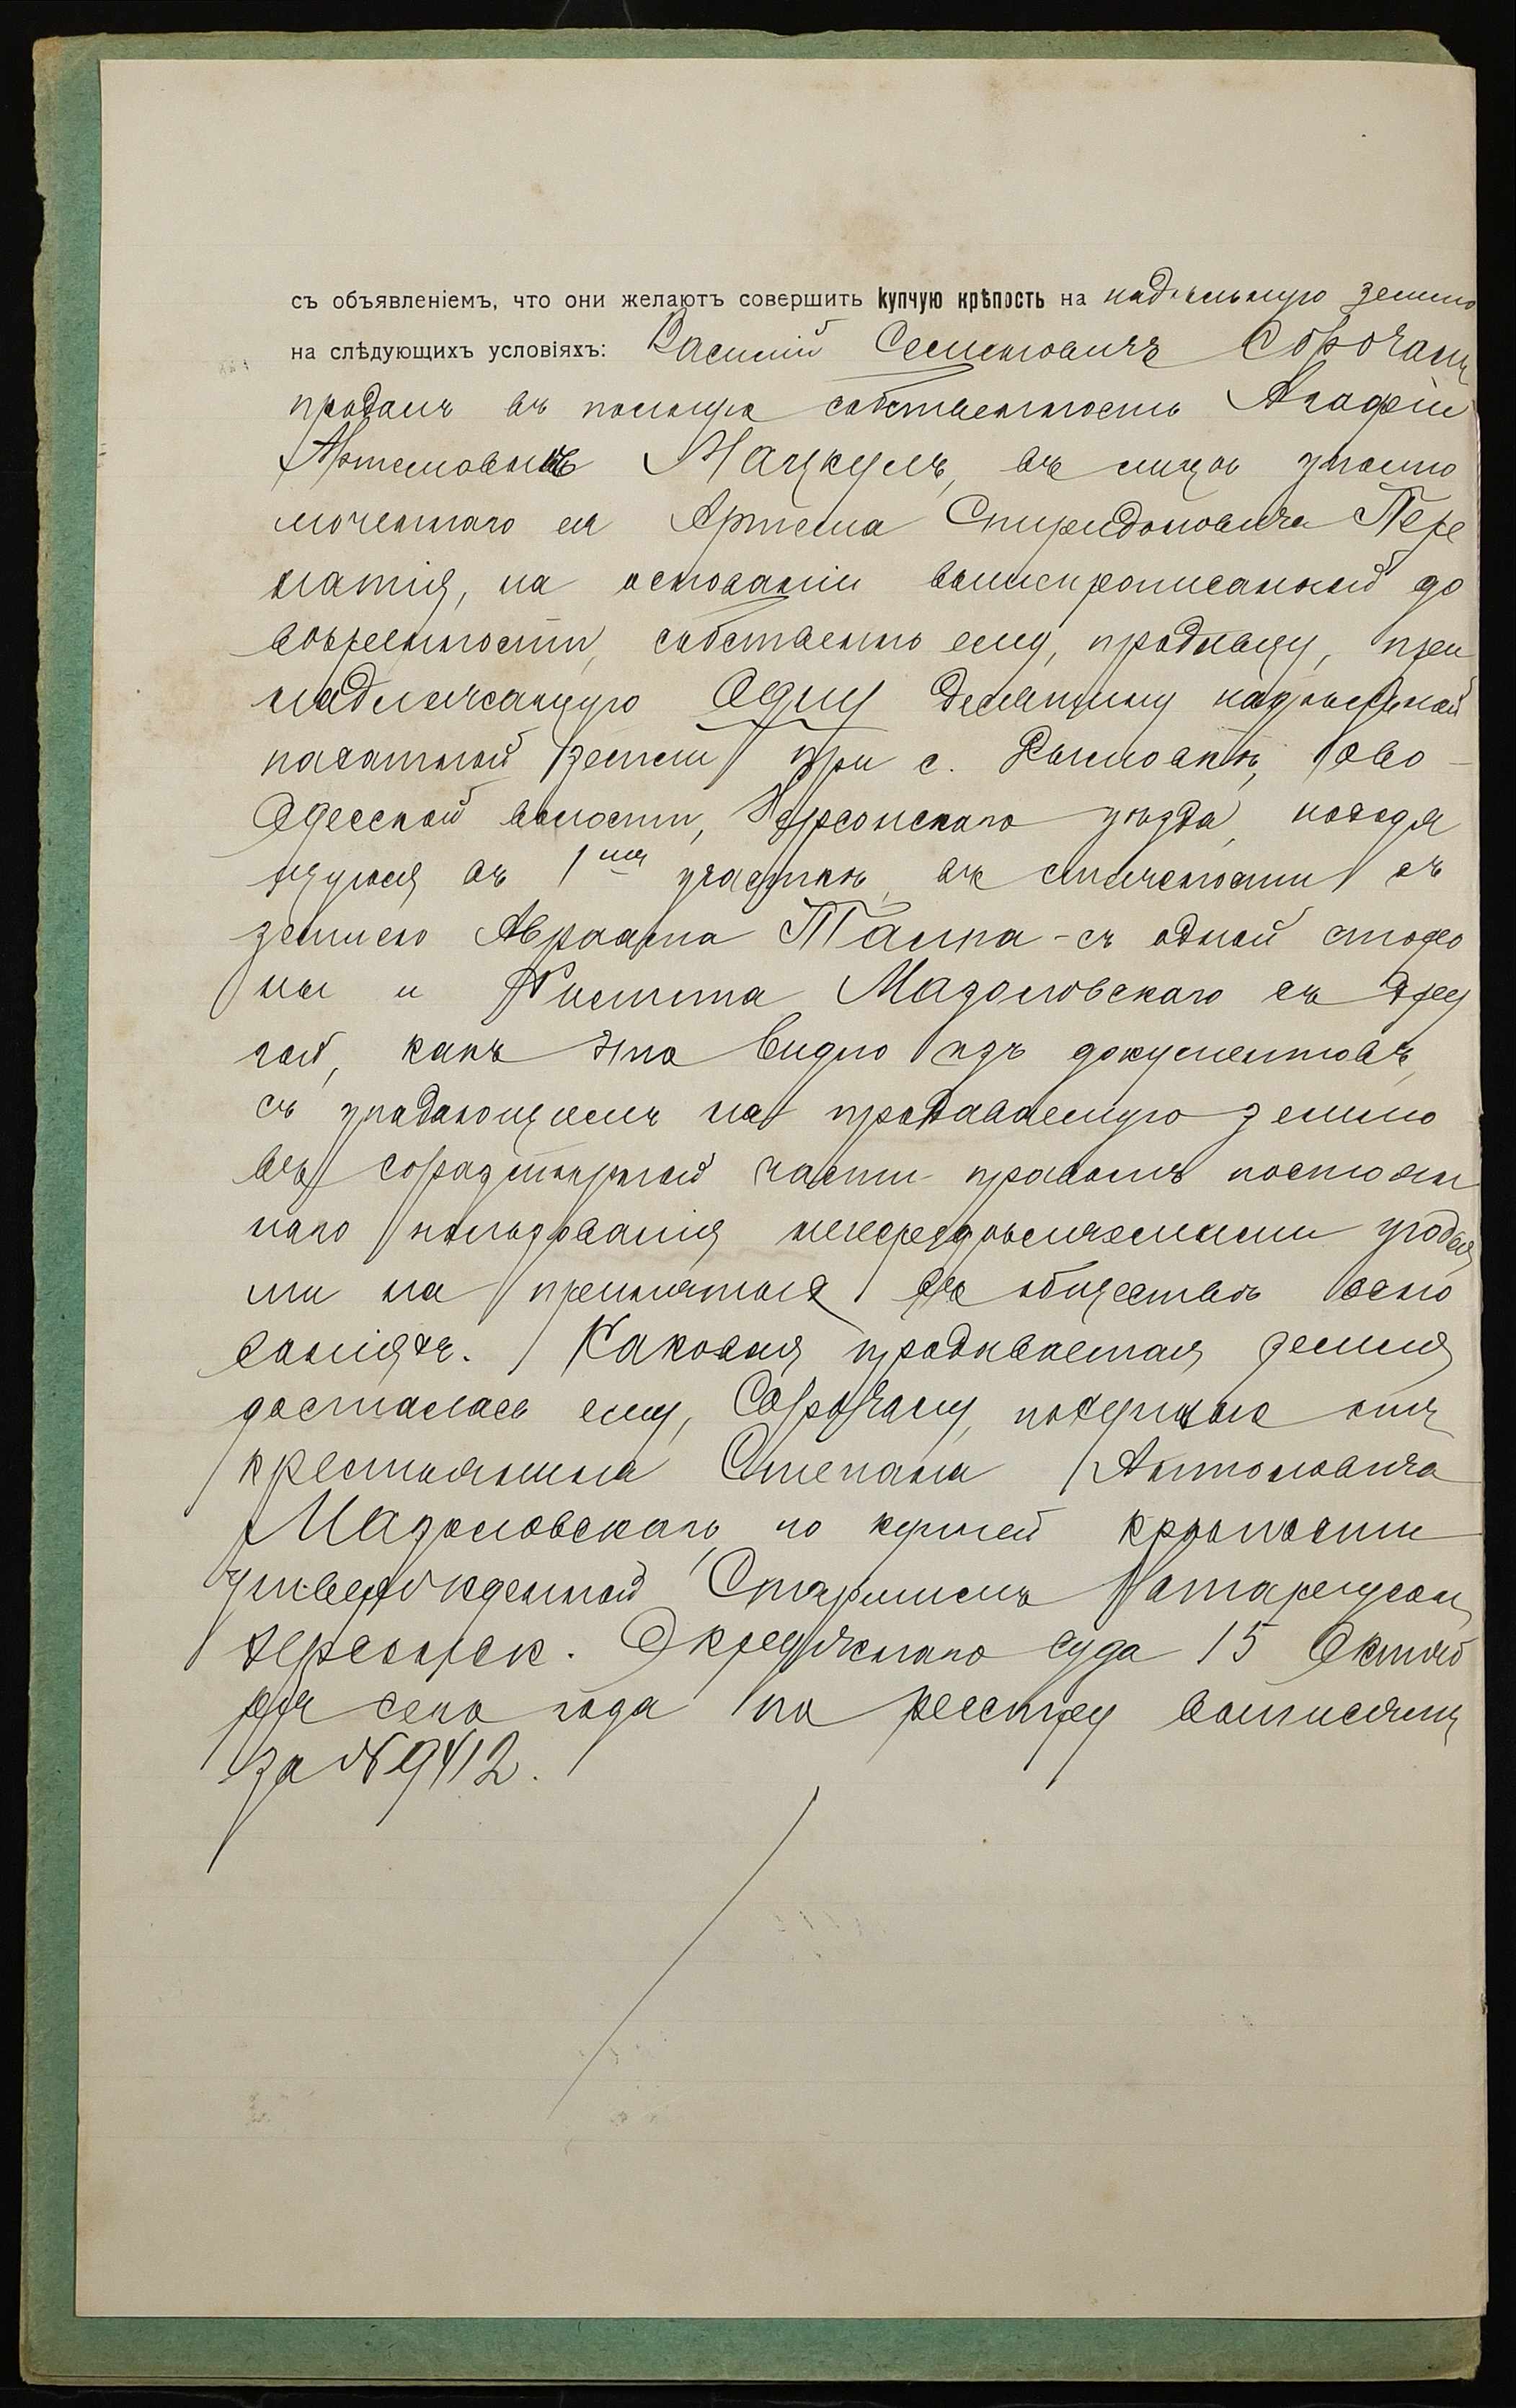 съ объявленіемъ, что они желаютъ совершить купчую крѣпость на надѣльную землю
на слѣдующихъ условіяхъ: Василій Семеновичъ Сорочанъ
продалъ въ полную собственность Агафіи
Артемовнѣ Мацкулъ, въ лицѣ уполно
моченнаго ея Артема Спиридоновича
на основаніи вышепрописанной до
вѣренности, собственно ему, продавцу, при
надлежащую Одну десятину надѣльной
пахатной земли при с. Ново-
Одесской волости, Херсонскаго уѣзда, находя
щуюся въ 1мъ участкѣ, въ смежности съ
землею Авраама Танпа - съ одной сторо
ны и Мазоловскаго съ дру
гой, какъ это видно изъ документовъ,
съ упадающимъ на продаваемую землю
въ соразмѣрной части правомъ постоян
наго пользованія непередѣляемыми угодья
ми на принятыхъ въ обществѣ осно
ваніяхъ. Каковая продаваемая земля
досталась ему, Сорочану, покупкою отъ
крестьянина Степана Антоновича
Мазоловскаго, по купчей крѣпости
утвержденной Старшимъ Нотаріусомъ
Херсонск. Окружнаго суда 15 Октяб
ря сего года по реестру
за №9412.